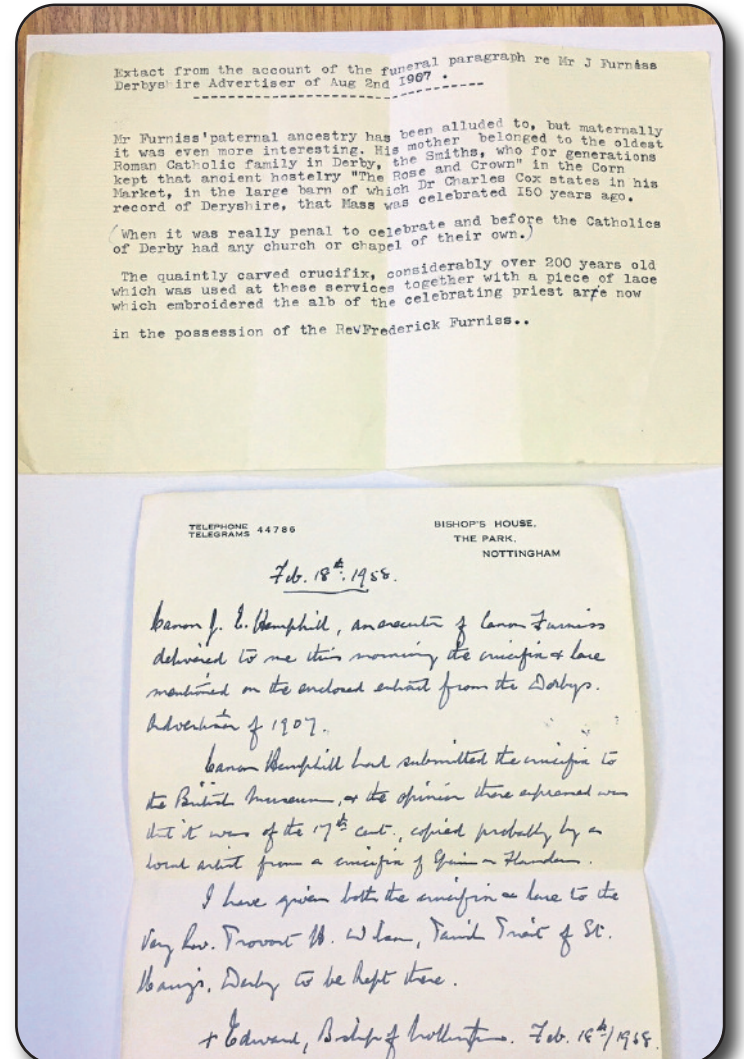 Extact from the account of the funeral paragraph re Mr J Furniss
Derbyshire Advertiser of Aug 2nd 1907 .
Mr Furniss'paternal ancestry has been alluded to, but maternally
it was even more interesting. His mother belonged to the oldest
Roman Catholic family in Derby, the Smiths, who for generations
kept that ancient hostelry "The Rose and Crown" in the Corn
Market, in the large barn of which Dr Charles Cox states in his
record of Deryshire, that Mass was celebrated I50 years ago.
(When it was really penal to celebrate and before the Catholics
of Derby had any church or chapel of their own.)
The quaintly carved crucifix, considerably over 200 years old
which was used at these services together with a piece of lace
which embroidered the alb of the celebrating priest are now
in the possession of the RevFrederick Furniss..
TELEPHONE
TELEGRAMS 44786
BISHOP'S HOUSE,
THE PARK,
NOTTINGHAM
Feb. 18th. 1958.
Canon J. E. Hemphill, an executor of Canon Furniss
delivered to me this morning the crucifix & lace
mentioned on the enclosed extract from the Derbys.
Advertiser of 1907.
Canon Hemphill had submitted the crucifix to
the British Museum, & the opinion there expressed was
that it was of the 17th cent., copied probably by a
local artist from a crucifix of Spain or Flanders.
I have given both the crucifix & lace to the
Very Rev. Provost H. Wilson, Parish Priest of St.
Mary's, Derby to be kept there.
+ Edward, Bishop of Nottingham. Feb. 18th/1958.